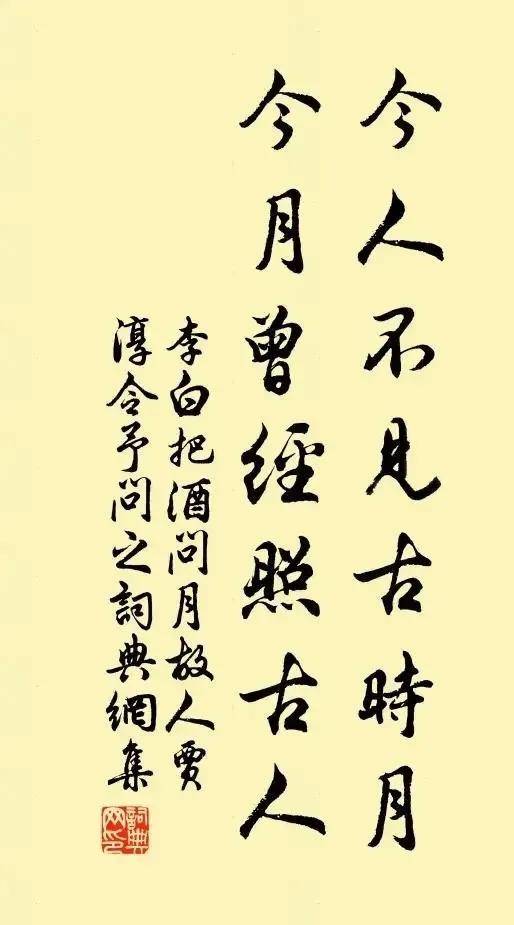 今人不見古時月
今月曾經照古人
李白把酒問月故人賈
淳令予問之詞典網集
詞典網印